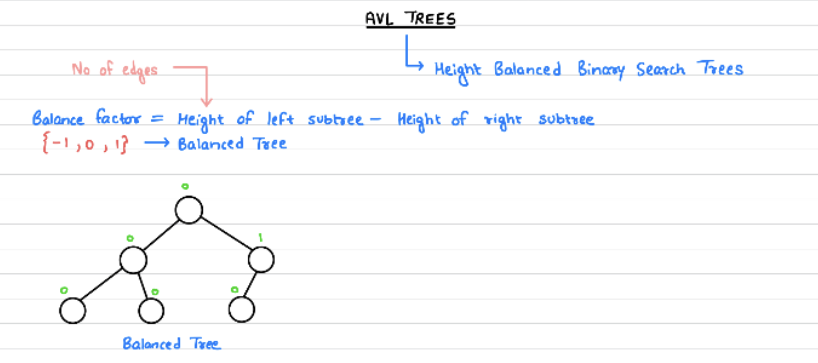 AVL TREES
Height Balanced Binary Search Trees
No of edges
Balance factor = Height of left subtree - Height of right subtree
{-1, 0, 1} → Balanced Tree
0
0 1
0 0 0
Balanced Tree